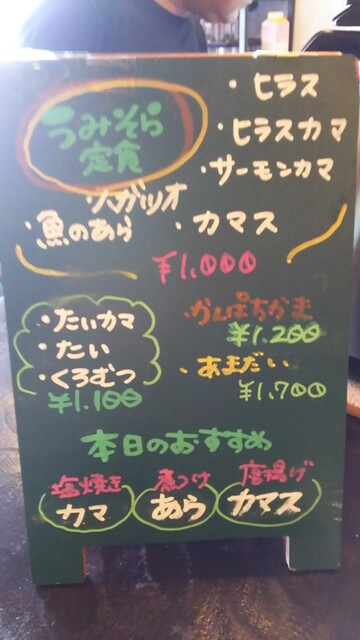 うみそら
定食
・ヒラス
・ヒラスカマ
・サーモンカマ
・魚のあら
・カマス
¥1,000
・たいカマ
・たい
・くろむつ
¥1.100
・かんぱちかま
¥1.200
・あまだい
¥1,700
本日のおすすめ
塩焼き
カマ
煮つけ
あら
唐揚げ
カマス